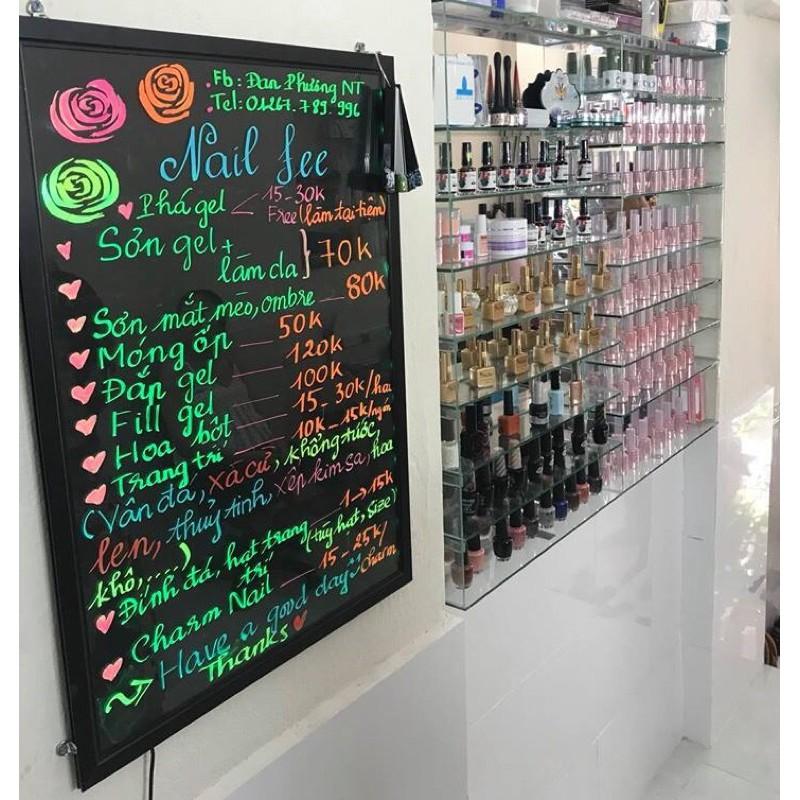 Fb: Đan Phương NT
Tel: 01267.789.996
Nail fee
Phá gel < 15-30k
Free (làm tại tiệm)
Sơn gel + làm da } 70k
Sơn mắt mèo, ombre — 80k
Móng ốp — 50k
Đắp gel — 120k
Fill gel — 100k
Hoa bột — 15-30k/hai
Trang trí — 10k-15k/ngón
(Vân đá, xà cừ, khổng tước,
len, thuỷ tinh, xếp kim sa, hoa
khô,....)
Đính đá, hạt trang trí — 1->15k
(tùy hạt, size)
Charm Nail — 15-25k/charm
~> Have a good day
Thanks